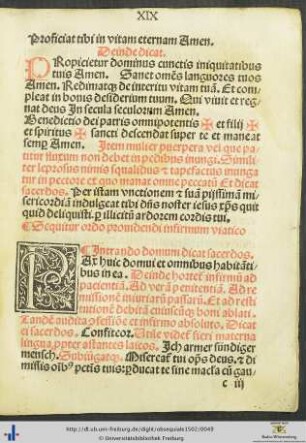 XIX
Proficiat tibi in vitam eternam Amen.
Deinde dicat.
PRopicietur dominus cunctis iniquitatibus
tuis Amen. Sanet omẽs languores tuos
Amen. Redimatqꝫ de interitu vitam tuã. Et com
pleat in bonis desiderium tuum. Qui viuit et reg
nat deus In secula seculorum Amen.
Benedictio dei patris omnipotentis ✠ et filij ✠
et spiritus ✠ sancti descendat super te et maneat
semp Amen. Item mulier puerpera vel que pa
titur fluxum non debet in pedibus inungi. Simili
ter leprosus nimis squalidus & tapefactus inunga
tur in pectore et quo manat omne peccatũ Et dicat
sacerdos. Per istam vnctionem & suã pijssimã mi
sericordiã indulgeat tibi dñs noster iesus xp̃s quit
quid deliquisti. p illicitũ ardorem cordis tui.
¶ Sequitur ordo prouidendi infirmum viatico
¶ Intrando domum dicat sacerdos.
PAx huic domui et omnibus habitãti
bus in ea. Deinde hortet infirmũ ad
pacientiã. Ad verã penitentiã. Ad re
missionẽ iniuriarũ passarũ. Et ad resti
tutionẽ debitã cuiuscũqꝫ boni ablati.
Tandẽ audita ꝯfessiõe et infirmo absoluto. Dicat
ei sacerdos. Confiteor. Utile videt̃ fieri materna
lingua ꝓpter astantes laicos. Ich armer sündiger
mensch. Subiũgatqꝫ. Misereat̃ tui op̃s deus. & di
missis oĩbꝰ pctis tuis: ꝑducat te sine macła cũ gau/
c iij
http://dl.ub.uni-freiburg.de/diglit/obsequiale1502/0049
© Universitätsbibliothek Freiburg